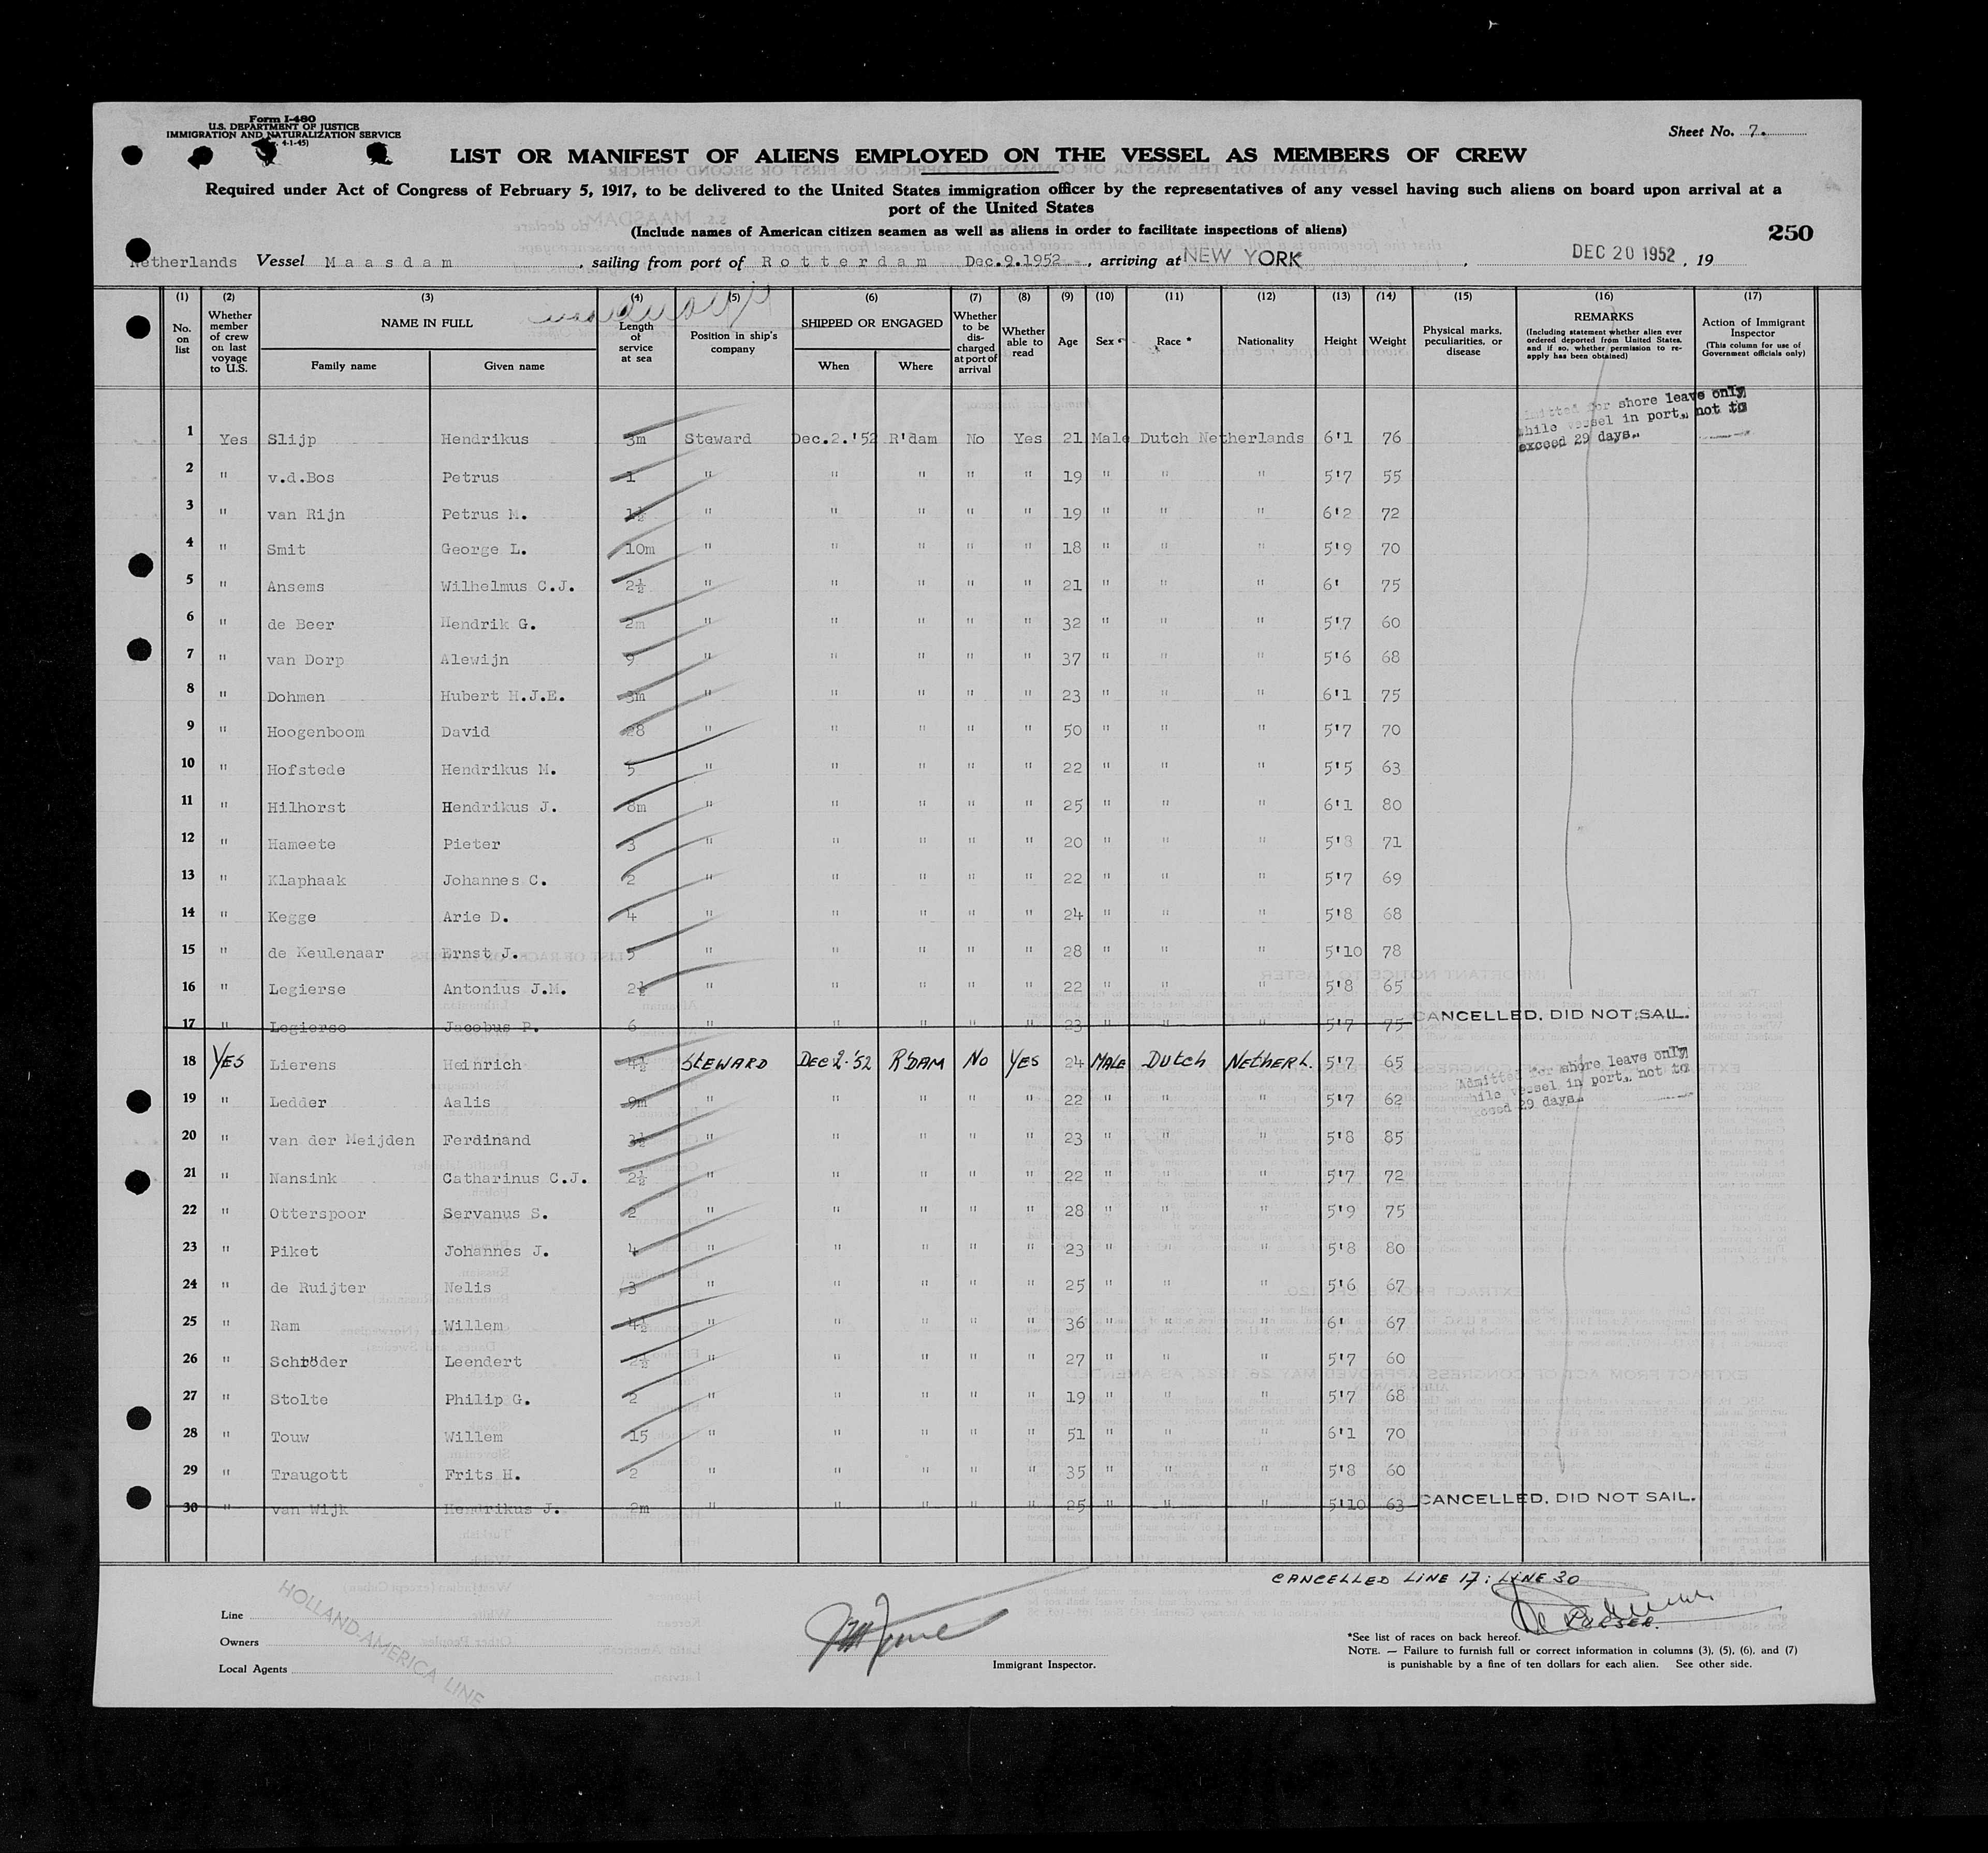 Form I-480
U.S. DEPARTMENT OF JUSTICE
IMMIGRATION AND NATURALIZATION SERVICE
4-1-45)
Sheet No. 7.
LIST OR MANIFEST OF ALIENS EMPLOYED ON THE VESSEL AS MEMBERS OF CREW
Required under Act of Congress of February 5, 1917, to be delivered to the United States immigration officer by the representatives of any vessel having such aliens on board upon arrival at a
port of the United States
(Include names of American citizen seamen as well as aliens in order to facilitate inspections of aliens)
250
Netherlands Vessel Maasdam, sailing from port of Rotterdam Dec.9.1952, arriving at NEW YORK, DEC 20 1952, 19
(1) (2) (3) (4) (5) (6) (7) (8) (9) (10) (11) (12) (13) (14) (15) (16) (17)
No. on list
Whether member of crew on last voyage to U.S.
NAME IN FULL
Family name
Given name
Length of service at sea
Position in ship's company
SHIPPED OR ENGAGED
When
Where
Whether to be discharged at port of arrival
Whether able to read
Age
Sex
Race *
Nationality
Height
Weight
Physical marks, peculiarities, or disease
REMARKS
(Including statement whether alien ever ordered deported from United States, and if so, whether permission to re-apply has been obtained)
Action of Immigrant Inspector
(This column for use of Government officials only)
Admitted for shore leave only
while vessel in port, not to
exceed 29 days.
1 Yes Slijp Hendrikus 3m Steward Dec.2.'52 R'dam No Yes 21 Male Dutch Netherlands 6'1 76
2 " v.d.Bos Petrus 1 " " " " " 19 " " " 5'7 55
3 " van Rijn Petrus M. 1½ " " " " " 19 " " " 6'2 72
4 " Smit George L. 10m " " " " " 18 " " " 5'9 70
5 " Ansems Wilhelmus C.J. 2½ " " " " " 21 " " " 6' 75
6 " de Beer Hendrik G. 2m " " " " " 32 " " " 5'7 60
7 " van Dorp Alewijn 9 " " " " " 37 " " " 5'6 68
8 " Dohmen Hubert H.J.E. 3m " " " " " 23 " " " 6'1 75
9 " Hoogenboom David 28 " " " " " 50 " " " 5'7 70
10 " Hofstede Hendrikus M. 5 " " " " " 22 " " " 5'5 63
11 " Hilhorst Hendrikus J. 8m " " " " " 25 " " " 6'1 80
12 " Hameete Pieter 3 " " " " " 20 " " " 5'8 71
13 " Klaphaak Johannes C. 2 " " " " " 22 " " " 5'7 69
14 " Kegge Arie D. 4 " " " " " 24 " " " 5'8 68
15 " de Keulenaar Ernst J. 5 " " " " " 28 " " " 5'10 78
16 " Legierse Antonius J.M. 2½ " " " " " 22 " " " 5'8 65
17 " Legierse Jacobus P. 6 " " " " " 23 " " " 5'7 75 CANCELLED. DID NOT SAIL.
18 YES Lierens Heinrich 4½ STEWARD DEC 2-'52 R'DAM NO YES 24 MALE DUtch NETHERL. 5'7 65
Admitted for shore leave only
while vessel in port, not to
exceed 29 days.
19 " Ledder Aalis 9m " " " " " 22 " " " 5'7 62
20 " van der Meijden Ferdinand 3½ " " " " " 23 " " " 5'8 85
21 " Nansink Catharinus C.J. 2½ " " " " " 22 " " " 5'7 72
22 " Otterspoor Servanus S. 2 " " " " " 28 " " " 5'9 75
23 " Piket Johannes J. 4 " " " " " 23 " " " 5'8 80
24 " de Ruijter Nelis 3 " " " " " 25 " " " 5'6 67
25 " Ram Willem 4½ " " " " " 36 " " " 6' 67
26 " Schröder Leendert 2½ " " " " " 27 " " " 5'7 60
27 " Stolte Philip G. 2 " " " " " 19 " " " 5'7 68
28 " Touw Willem 15 " " " " " 51 " " " 6'1 70
29 " Traugott Frits H. 2 " " " " " 35 " " " 5'8 60
30 " van Wijk Hendrikus J. 2m " " " " " 25 " " " 5'10 63 CANCELLED. DID NOT SAIL.
CANCELLED LINE 17; LINE 30
PURSER.
Line
Owners
Local Agents
HOLLAND-AMERICA LINE
Immigrant Inspector.
*See list of races on back hereof.
NOTE. — Failure to furnish full or correct information in columns (3), (5), (6), and (7)
is punishable by a fine of ten dollars for each alien. See other side.